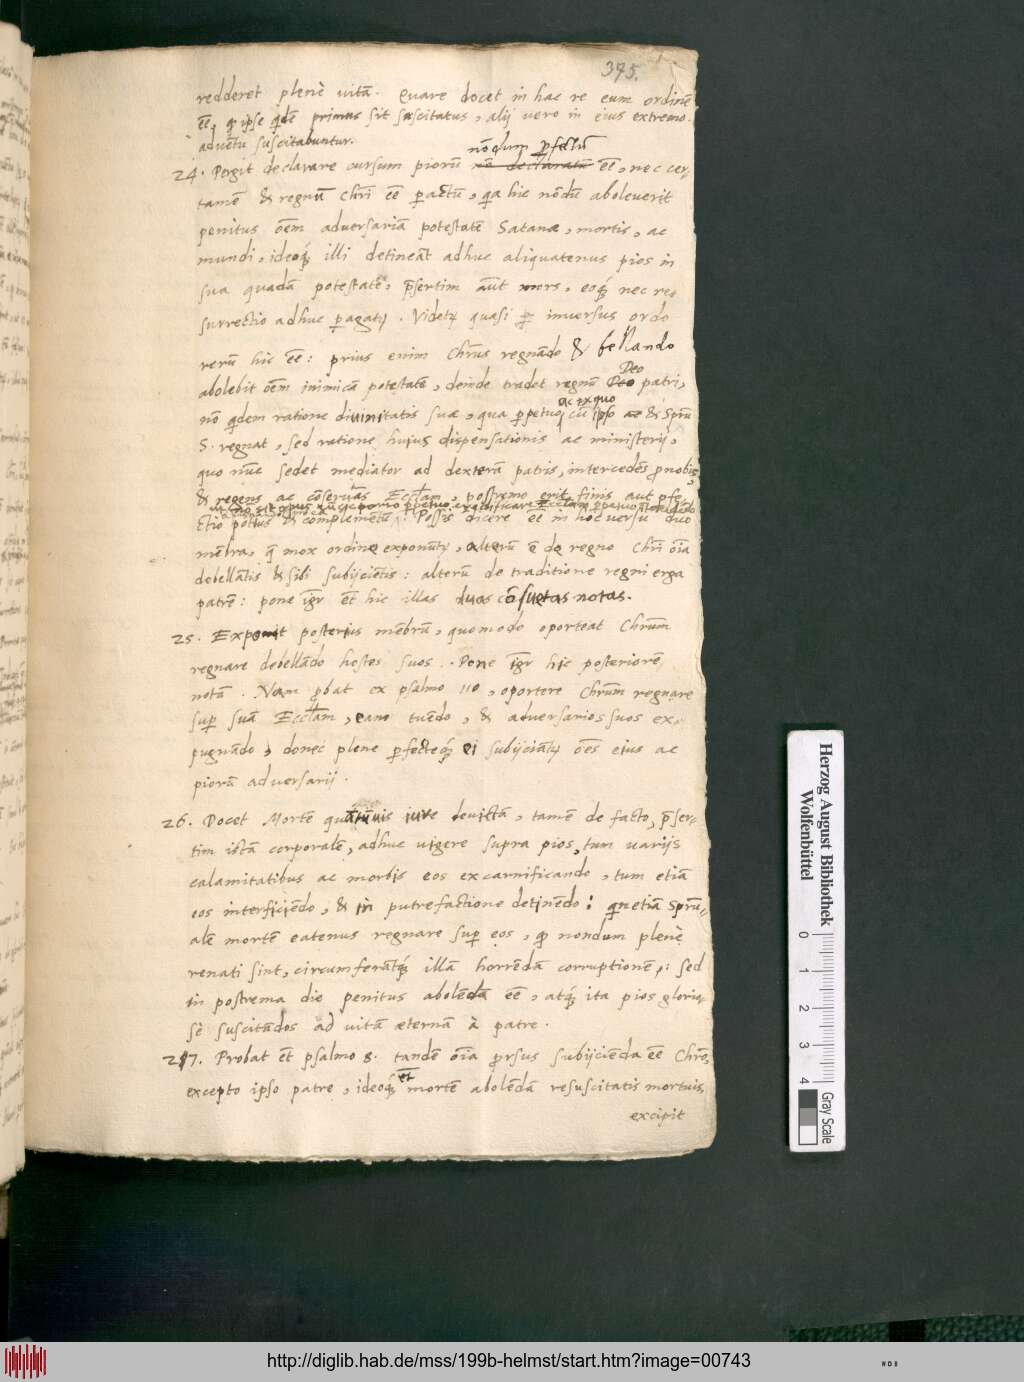 375.
redderet plenè vitã. Quare docet in hac re eum ordinẽ
eẽ, qͥ ipse qͥdẽ primus sit suscitatus, alij vero in eius extremo
adventu suscitabuntur.
nõdum ꝑfectũ
24. Pergit declarare cursum piorũ nõ declaratũ eẽ, nec cer-
tamẽ & regnũ Chrĩ eẽ ꝑactũ, qͣ hic nõdũ aboleverit
penitus oẽm adversariã potestatẽ Satanæ, mortis, ac
mundi, ideoqꝫ illi detineãt adhuc aliquatenus pios in
sua quadã potestatẽ, p̃sertim aũt mors, eoqꝫ nec re-
surrectio adhuc ꝑagatꝰ. Videtꝰ quasi inversus ordo
rerũ hic eẽ: prius enim Chr̃us regnãdo & bellando
abolebit oẽm inimicã potestatẽ, deinde tradet regnũ Deo patri,
Deo
nõ qͥdem ratione divinitatis suæ, qua ꝑpetuo cũ ipso ac & Spr̃u
ac ex quo
S. regnat, sed ratione huius dispensationis ac ministerij,
quo nũc sedet mediator ad dexterã patris, intercedẽs ꝓ nobis,
& regens ac cõservãs Eccl̃am, postremo erit finis aut ꝑfe-
ctio potius & complementũ. Possis dicere eẽ in hoc versu duo
mẽbra, q̃ mox ordine exponũtꝰ, alterũ ẽ de regno Chrĩ oĩa
debellãtis & sibi subijciẽtis: alterũ de traditione regni erga
patrẽ: pone igr̃ eẽt hic illas duas cõsuetas notas.
25. Exponit posterius mẽbrũ, quomodo oporteat Chr̃um
regnare debellãdo hostes suos. Pone igr̃ hic posteriorẽ
notã. Nam ꝓbat ex psalmo 110, oportere Chr̃um regnare
suꝑ suã Eccl̃am, eamq tuẽdo, & adversarios suos ex-
pugnãdo, donec plene ꝑfecteqꝫ ei subijciãtꝰ oẽs eius ac
piorũ adversarij.
26. Docet Mortẽ quãtũvis iure devictã, tamẽ de facto, p̃ser-
tim istã corporalẽ, adhuc vigere supra pios, tum varijs
calamitatibus ac morbis eos excarnificando, tum etiã
eos interficiẽdo, & in putrefactione detinẽdo: qͥn etiã Spr̃u-
alẽ mortẽ eatenus regnare suꝑ eos, qͥ nondum plenè
renati sint, circumferãtqꝫ illã horrẽdã corruptionẽ: sed
in postrema die penitus abolẽdã eẽ, atqꝫ ita pios glorio-
sè suscitãdos ad vitã æternã à patre.
27. Probat eẽt psalmo 8. tandẽ oĩa ꝓrsus subijciẽda eẽ Chr̃o,
et
excepto ipso patre, ideoqꝫ mortẽ abolẽdã resuscitatis mortuis,
excipit
Herzog August Bibliothek
Wolfenbüttel
0 1 2 3 4
Gray Scale
http://diglib.hab.de/mss/199b-helmst/start.htm?image=00743